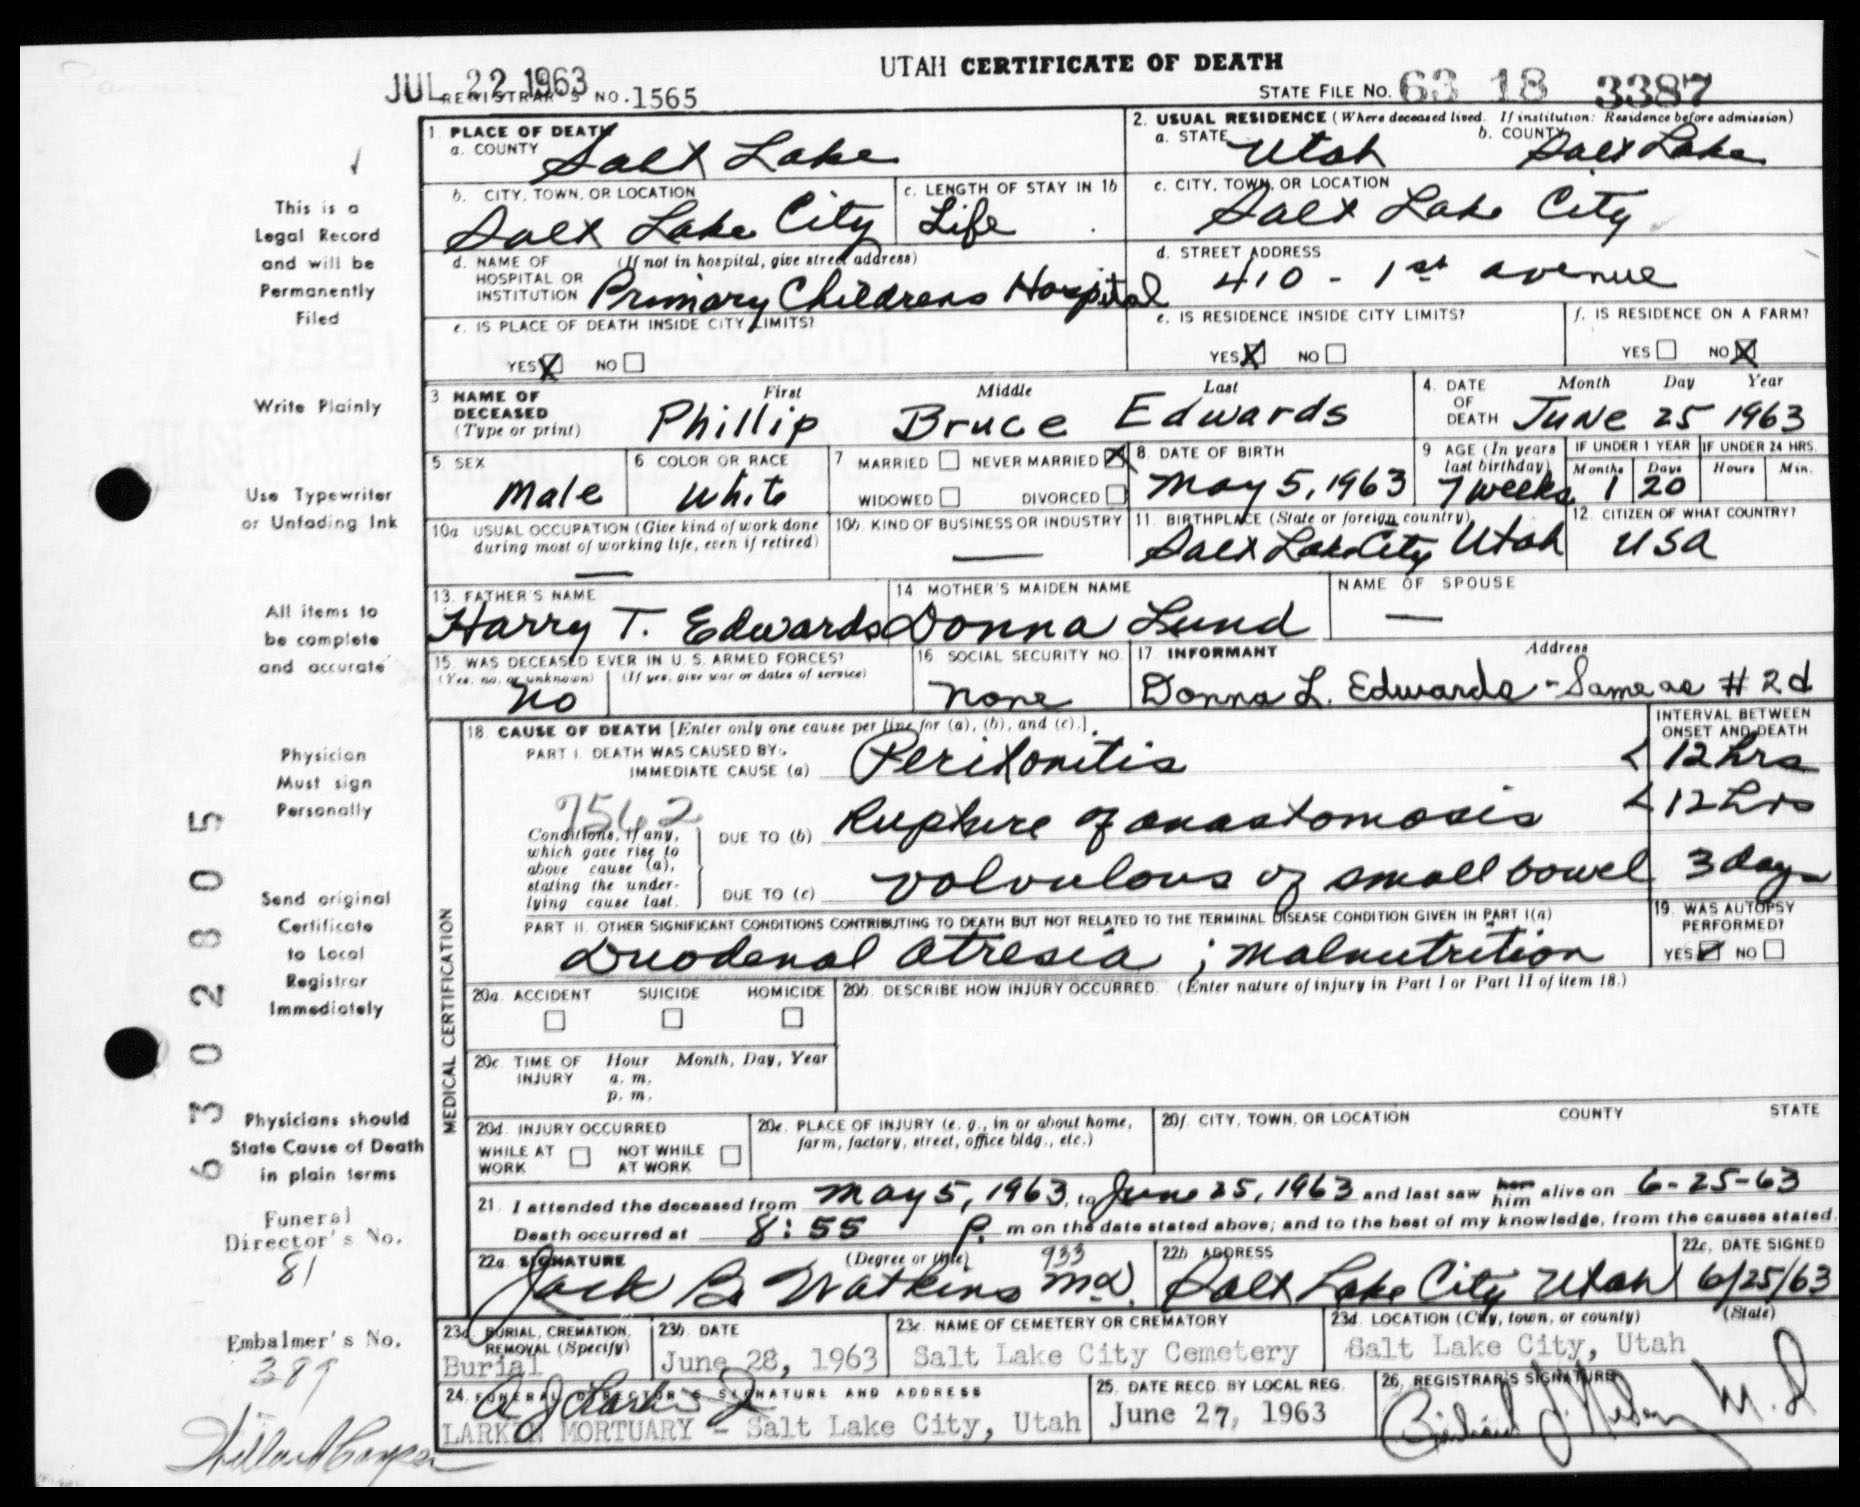 UTAH CERTIFICATE OF DEATH
JUL 22 1963
REGISTRAR'S NO. 1565
STATE FILE NO. 63 18 3387
This is a
Legal Record
and will be
Permanently
Filed
Write Plainly
Use Typewriter
or Unfading Ink
All items to
be complete
and accurate
Physician
Must sign
Personally
Send original
Certificate
to Local
Registrar
Immediately
Physicians should
State Cause of Death
in plain terms
Funeral
Director's No.
81
Embalmer's No.
389
6302805
1. PLACE OF DEATH
a. COUNTY Salt Lake
2. USUAL RESIDENCE (Where deceased lived. If institution: Residence before admission)
a. STATE Utah b. COUNTY Salt Lake
b. CITY, TOWN, OR LOCATION
Salt Lake City
c. LENGTH OF STAY IN 1b
Life
c. CITY, TOWN, OR LOCATION
Salt Lake City
d. NAME OF (If not in hospital, give street address)
HOSPITAL OR
INSTITUTION Primary Childrens Hospital
d. STREET ADDRESS
410 - 1st avenue
e. IS PLACE OF DEATH INSIDE CITY LIMITS?
YES X NO
e. IS RESIDENCE INSIDE CITY LIMITS?
YES X NO
f. IS RESIDENCE ON A FARM?
YES NO X
3 NAME OF DECEASED (Type or print) First Middle Last
Phillip Bruce Edwards
4. DATE OF DEATH Month Day Year
June 25 1963
5. SEX
Male
6 COLOR OR RACE
White
7 MARRIED NEVER MARRIED X
WIDOWED DIVORCED
8. DATE OF BIRTH
May 5, 1963
9 AGE (In years last birthday)
7 weeks
IF UNDER 1 YEAR
Months Days
1 20
IF UNDER 24 HRS.
Hours Min.
10a. USUAL OCCUPATION (Give kind of work done
during most of working life, even if retired)
—
10b. KIND OF BUSINESS OR INDUSTRY
—
11. BIRTHPLACE (State or foreign country)
Salt Lake City Utah
12. CITIZEN OF WHAT COUNTRY?
USA
13. FATHER'S NAME
Harry T. Edwards
14 MOTHER'S MAIDEN NAME
Donna Lund
NAME OF SPOUSE
—
15. WAS DECEASED EVER IN U. S. ARMED FORCES?
(Yes, no, or unknown) (If yes, give war or dates of service)
No
16 SOCIAL SECURITY NO.
none
17 INFORMANT Address
Donna L. Edwards - Same as # 2d
MEDICAL CERTIFICATION
18. CAUSE OF DEATH [Enter only one cause per line for (a), (b), and (c).]
INTERVAL BETWEEN
ONSET AND DEATH
PART I. DEATH WAS CAUSED BY:
IMMEDIATE CAUSE (a) Peritonitis < 12 hrs
7562
Conditions, if any,
which gave rise to
above cause (a),
stating the under-
lying cause last.
DUE TO (b) Rupture of anastomosis < 12 hrs
DUE TO (c) volvulous of small bowel 3 days
PART II. OTHER SIGNIFICANT CONDITIONS CONTRIBUTING TO DEATH BUT NOT RELATED TO THE TERMINAL DISEASE CONDITION GIVEN IN PART I(a)
Duodenal atresia ; Malnutrition
19. WAS AUTOPSY
PERFORMED?
YES ✓ NO
20a. ACCIDENT SUICIDE HOMICIDE
20b. DESCRIBE HOW INJURY OCCURRED. (Enter nature of injury in Part I or Part II of item 18.)
20c. TIME OF INJURY Hour Month, Day, Year
a. m.
p. m.
20d. INJURY OCCURRED
WHILE AT WORK NOT WHILE AT WORK
20e. PLACE OF INJURY (e. g., in or about home,
farm, factory, street, office bldg., etc.)
20f. CITY, TOWN, OR LOCATION COUNTY STATE
21. I attended the deceased from May 5, 1963, to June 25, 1963 and last saw her him alive on 6-25-63
Death occurred at 8:55 P. m on the date stated above; and to the best of my knowledge, from the causes stated.
22a. SIGNATURE (Degree or title) 933
Jack B. Watkins M.D.
22b. ADDRESS
Salt Lake City Utah
22c. DATE SIGNED
6/25/63
23a. BURIAL, CREMATION,
REMOVAL (Specify)
Burial
23b. DATE
June 28, 1963
23c. NAME OF CEMETERY OR CREMATORY
Salt Lake City Cemetery
23d. LOCATION (City, town, or county) (State)
Salt Lake City, Utah
24. FUNERAL DIRECTOR'S SIGNATURE AND ADDRESS
LARKIN MORTUARY - Salt Lake City, Utah
25. DATE RECD. BY LOCAL REG.
June 27, 1963
26. REGISTRAR'S SIGNATURE
M.D